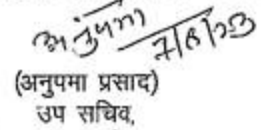 अनुपमा
7/8/23
(अनुपमा प्रसाद)
उप सचिव,